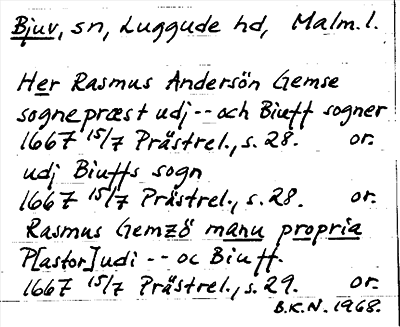 Bjuv, sn, Luggude hd, Malm. l.
Her Rasmus Andersön Gemse
sognepræst udj -- och Biuff sogner
1667 15/7 Prästrel., s. 28. or.
udj Biuffs sogn
1667 15/7 Prästrel., s. 28. or.
Rasmus Gemzö manu propria
P[astor] udi -- oc Biuff.
1667 15/7 Prästrel., s. 29. or.
B.K.N. 1968.